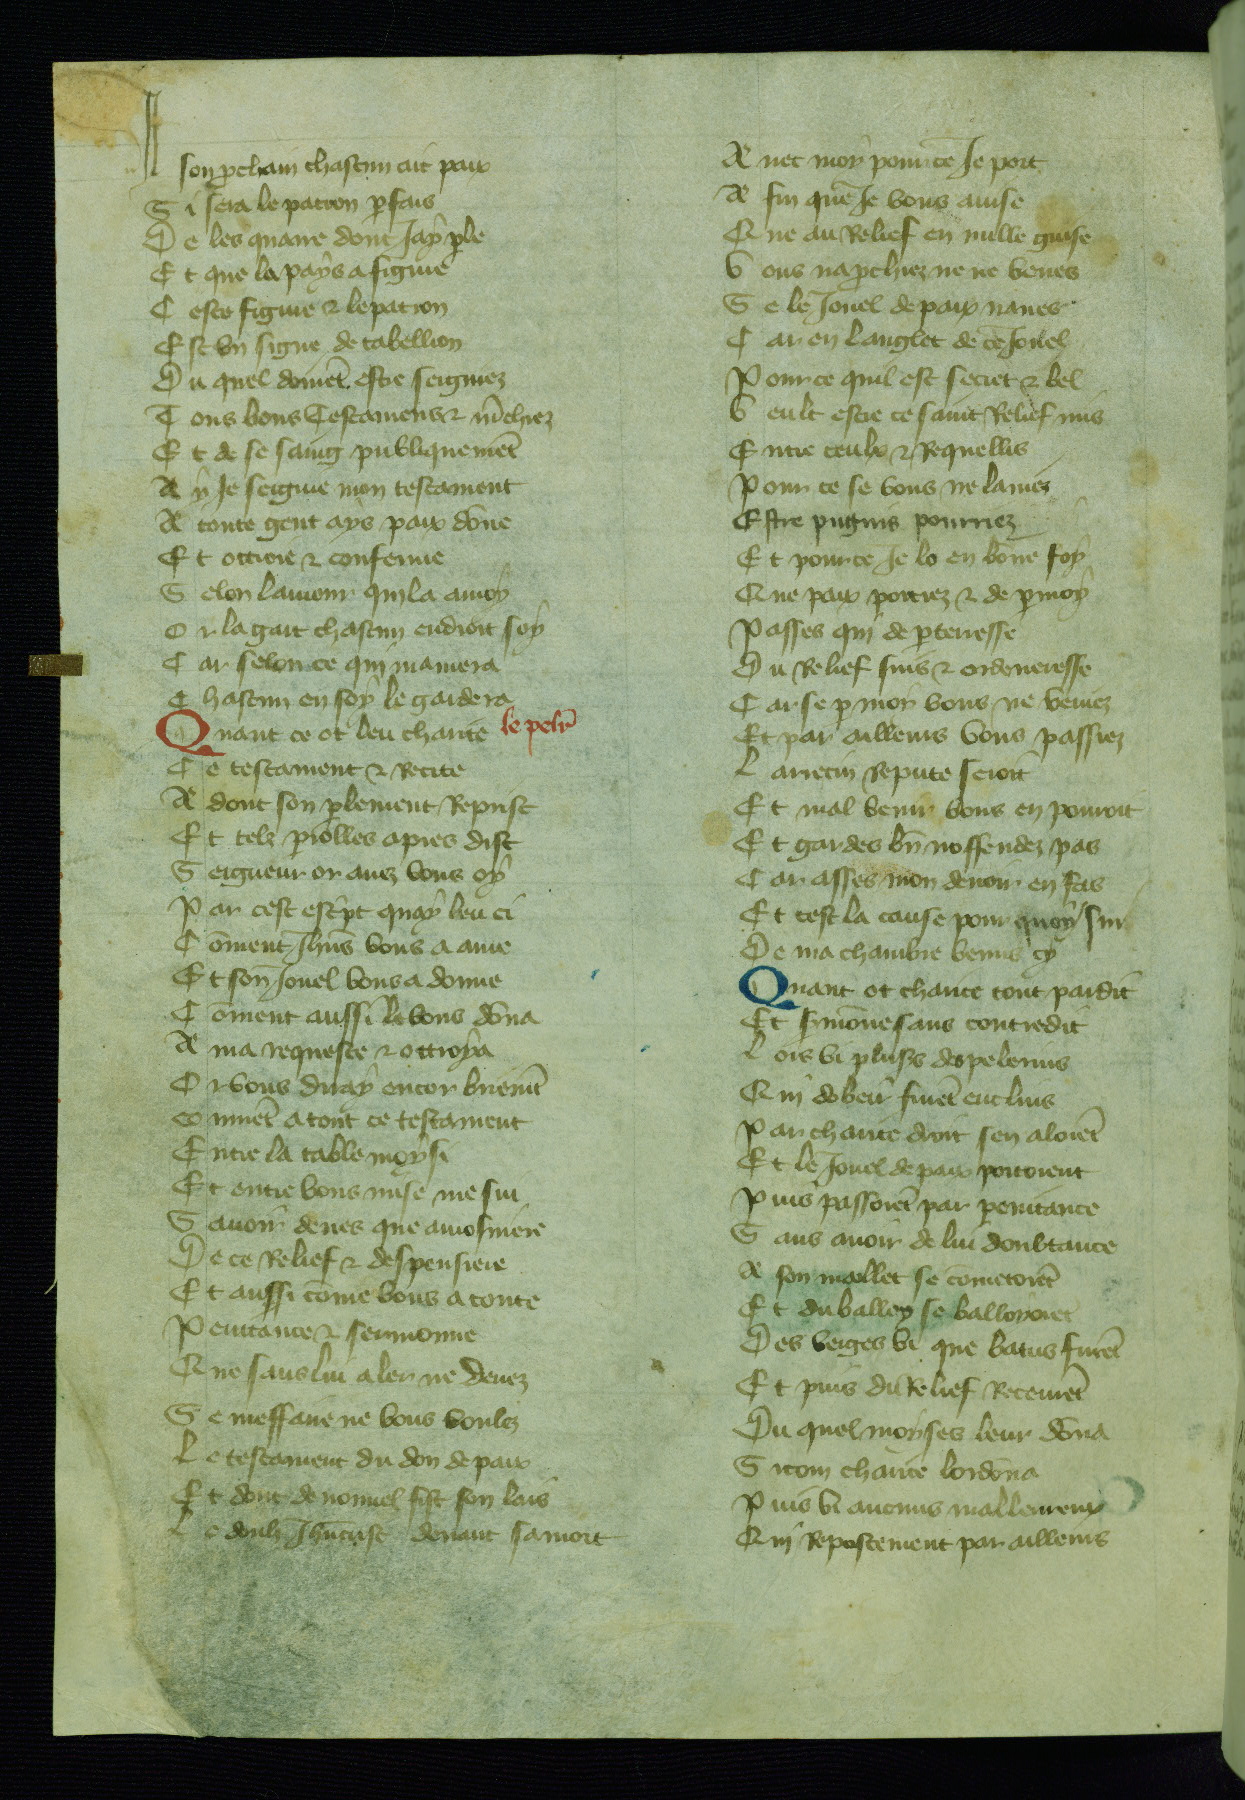 A son pchain chascun ait paix
Si sera le patron pfais
De les quarre dont Jay ple
Et que la pays a figure
Ceste figure & le patron
Est vn signe de tabellion
Du quel doiuēt estre seignez
Tous bons Testamens & m̄chiez
Et de se saing publiquemēt
Ay Je seigne mon testament
A toute gent ays paix dōne
Et ottroie & conferme
Selon lamour quil a a moy
Or la gart chascun endroit soy
Car selon ce quil mamera
Chascun en soy le gardera
Quant ce ot leu charite le pelr̄
Ce testament & Recite
A dont son plement Reprist
Et telz parolles apres dist
Seigneur or auez vous oy
Par cest escpt quay leu ci
Cōment Jhūs vous a ame
Et son Jouel vous a donne
Cōment aussi le vous dōna
A ma requeste & ottroya
Or vous diray encor briefmēt
Commēt a tout ce testament
Entre la table moysi
Et entre vous mise me sui
Sauoir deues que aumosniere
De ce Relief & despensiere
Et aussi cōme vous a conte
Penitance & sermonne
Que sans lui aler ne deuez
Se meffaire ne vous voulez
Le testament du don de paix
Et dont de nouuel fist son lais
Le doulz Jhūcrist deuant sa mort
Auec moy pour ce Je port
A fin que Je vous auise
Que au Relief en nulle guise
Vous naprchiez ne ne venes
Se le Jouel de paix naues
Car en langlet de ce Jouel
Pour ce quil est secret & bel
Veult estre ce saint Relief mis
Entre ceulx & Requellis
Pour ce se vous ne lauies
Estre pugnis pourriez
Et pour ce Je lo en bōne foy
Que paix portiez & de p moy
Passes qui de p tenresse
Du Relief suis & ordeneresse
Car se p moy vous ne veniez
Et par ailleurs vous passiez
Larrecin Repute seroit
Et mal venir vous en pouroit
Et gardes bn̄ noffendez pas
Car asses mon deuoir en fas
Et cest la cause pour quoy sui
De ma chambre venue cy
Quant ot charite tout pardit
Et smōne sans contredit
Lors vi pluss des pelerins
Qui dobeir furēt enclins
Par charite droit sen aloiēt
Et le Jouel de paix portoient
Puis passoiēt par penitance
Sans auoir de lui doubtance
A son maillet se cōmetoiēt
Et du balley se balloyoiēt
Des verges vi que batus furēt
Et puis du Relief Receurēt
Du quel moyses leur dōna
Si com charite lordōna
Puis vi aucuns malleureux
Qui Repostement par ailleurs